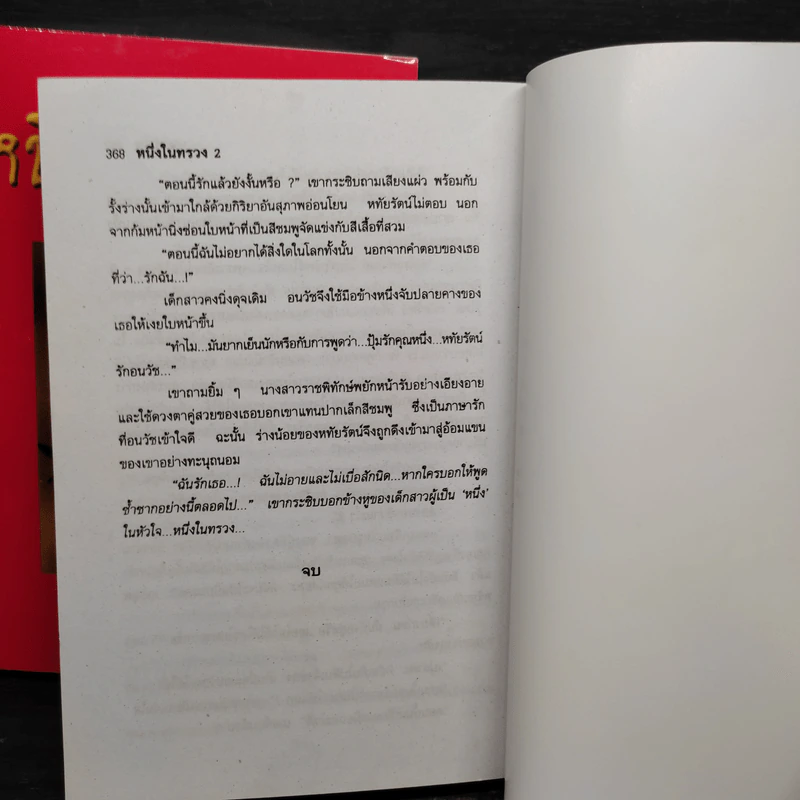 หนึ่
368 หนึ่งในทรวง 2
“ตอนนี้รักแล้วยังงั้นหรือ ?” เขากระซิบถามเสียงแผ่ว พร้อมกับ
รั้งร่างนั้นเข้ามาใกล้ด้วยกิริยาอันสุภาพอ่อนโยน หทัยรัตน์ไม่ตอบ นอก
จากก้มหน้านิ่งซ่อนใบหน้าที่เป็นสีชมพูจัดแข่งกับสีเสื้อที่สวม
“ตอนนี้ฉันไม่อยากได้สิ่งใดในโลกทั้งนั้น นอกจากคำตอบของเธอ
ที่ว่า...รักฉัน...!”
เด็กสาวคงนิ่งดุจเดิม อนวัชจึงใช้มือข้างหนึ่งจับปลายคางของ
เธอให้เงยใบหน้าขึ้น
“ทำไม...มันยากเย็นนักหรือกับการพูดว่า...ปุ้มรักคุณหนึ่ง...หทัยรัตน์
รักอนวัช...”
เขาถามยิ้ม ๆ นางสาวราชพิทักษ์พยักหน้ารับอย่างเอียงอาย
และใช้ดวงตาคู่สวยของเธอบอกเขาแทนปากเล็กสีชมพู ซึ่งเป็นภาษารัก
ที่อนวัชเข้าใจดี ฉะนั้น ร่างน้อยของหทัยรัตน์จึงถูกดึงเข้ามาสู่อ้อมแขน
ของเขาอย่างทะนุถนอม
“ฉันรักเธอ...! ฉันไม่อายและไม่เบื่อสักนิด...หากใครบอกให้พูด
ซ้ำซากอย่างนี้ตลอดไป...” เขากระซิบบอกข้างหูของเด็กสาวผู้เป็น ‘หนึ่ง’
ในหัวใจ...หนึ่งในทรวง...
จบ